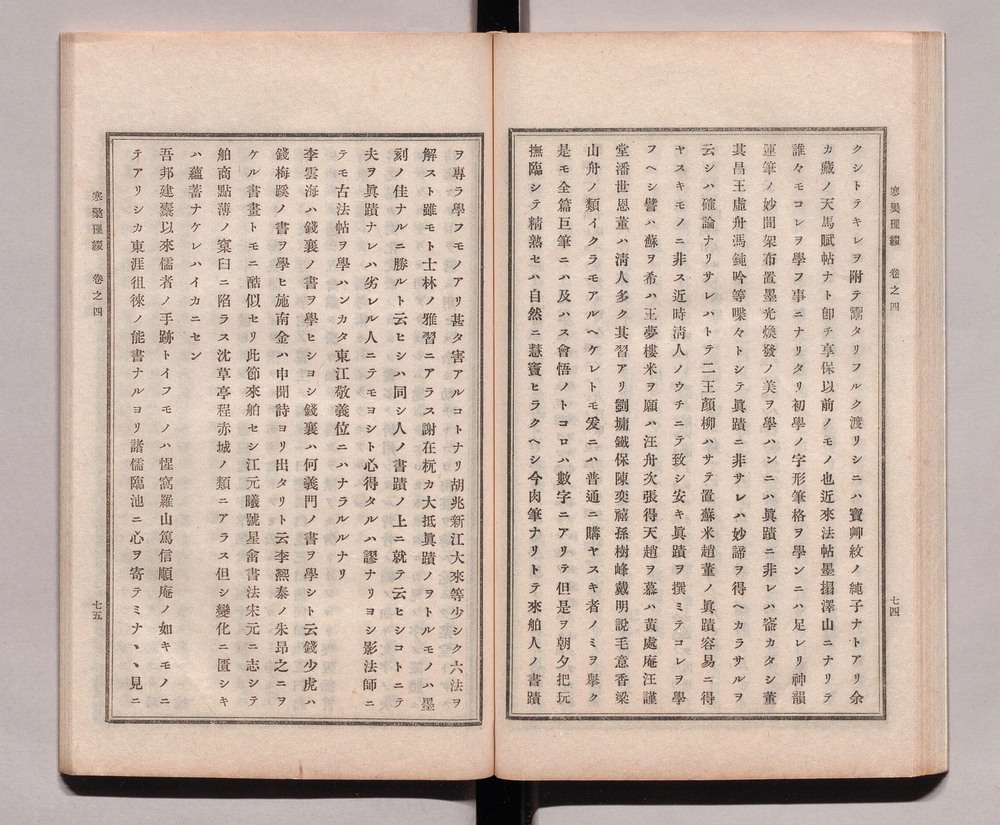 寒檠璅綴　卷之四
七四
クシトテキレヲ附テ霸タリフルク渡リシニハ寶艸紋ノ純子ナトアリ余
カ藏ノ天馬賦帖ナト卽チ享保以前ノモノ也近來法帖墨搨澤山ニナリテ
誰々モコレヲ學フ事ニナリタリ初學ノ字形筆格ヲ學ンニハ足レリ神韻
運筆ノ妙間架布置墨光煥發ノ美ヲ學ハンニハ眞蹟ニ非レハ窬カタシ董
其昌王虛舟馮鈍吟等喋々トシテ眞蹟ニ非サレハ妙諦ヲ得ヘカラサルヲ
云シハ確論ナリサレハトテ二王顏柳ハサテ置蘇米趙董ノ眞蹟容易ニ得
ヤスキモノニ非ス近時淸人ノウチニテ致シ安キ眞蹟ヲ撰ミテコレヲ學
フヘシ譬ハ蘇ヲ希ハ王夢樓米ヲ願ハ汪舟次張得天趙ヲ慕ハ黃處庵汪謹
堂潘世恩董ハ淸人多ク其習アリ劉墉鐵保陳奕禧孫樹峰戴明說毛意香梁
山舟ノ類イクラモアルヘケレトモ爰ニハ普通ニ購ヤスキ者ノミヲ擧ク
是モ全篇巨筆ニハ及ハス會悟ノトコロハ數字ニアリテ但是ヲ朝夕把玩
撫臨シテ精熟セハ自然ニ慧竇ヒラクヘシ今肉筆ナリトテ來舶人ノ書蹟
ヲ專ラ學フモノアリ甚タ害アルコトナリ胡兆新江大來等少シク六法ヲ
解スト雖モト士林ノ雅習ニアラス謝在杭カ大抵眞蹟ノヲトルモノハ墨
刻ノ佳ナルニ勝ルト云ヒシハ同シ人ノ書蹟ノ上ニ就テ云ヒシコトニテ
夫ヲ眞蹟ナレハ劣レル人ニテモヨシト心得タルハ謬ナリヨシ影法師ニ
テモ古法帖ヲ學ハンカタ東江敬義位ニハナラルルナリ
李雲海ハ錢襄ノ書ヲ學ヒシヨシ錢襄ハ何義門ノ書ヲ學シト云錢少虎ハ
錢梅蹊ノ書ヲ學ヒ施南金ハ申聞詩ヨリ出タリト云李㵙泰ノ朱昂之ニヲ
ケル書畫トモニ酷似セリ此節來舶セシ江元曦號星畲書法宋元ニ志シテ
舶商點薄ノ窠臼ニ陷ラス沈草亭程赤城ノ類ニアラス但シ變化ニ匱シキ
ハ蘊蓄ナケレハイカニセン
吾邦建櫜以來儒者ノ手跡トイフモノハ惺窩羅山篤信順庵ノ如キモノニ
テアリシカ東涯徂徠ノ能書ナルヨリ諸儒臨池ニ心ヲ寄テミナヽヽ見ニ
寒檠璅綴　卷之四
七五